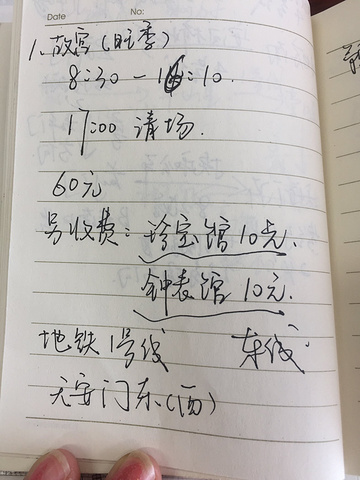 Date No:
1、故宫(旺季)
8:30-16:10.
17:00 清场.
60元
另收费:珍宝馆10元.
钟表馆10元.
地铁1号线 东线
天安门东(西)